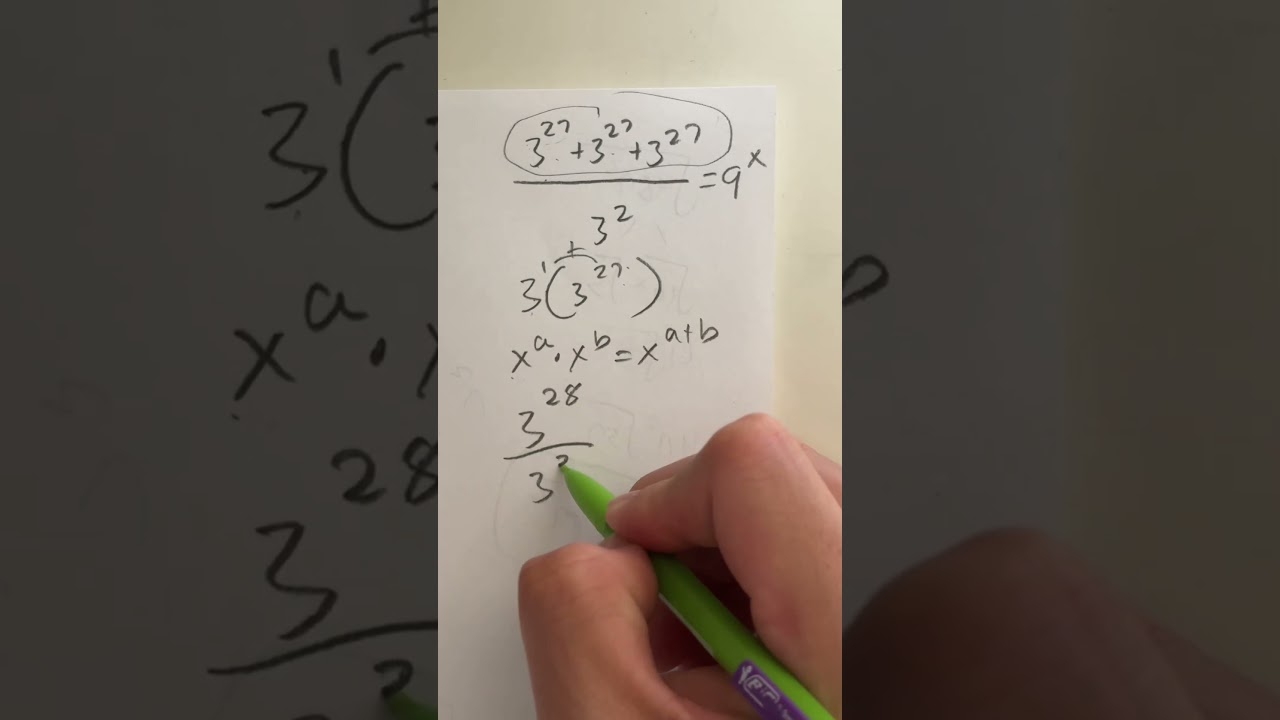 3^27 + 3^27 + 3^27 = 9^x
3^2
+
3^1(3^27)
x^a · x^b = x^(a+b)
3^28
3^2